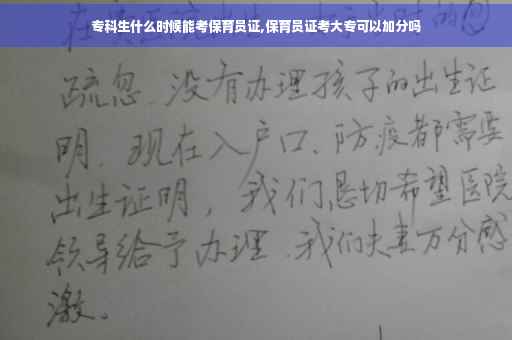 专科生什么时候能考保育员证,保育员证考大专可以加分吗
疏忽、没有办理孩子的出生证
明、现在入户口、防疫都需要
出生证明，我们恳切希望医院
领导给予办理、我们夫妻万分感
激。